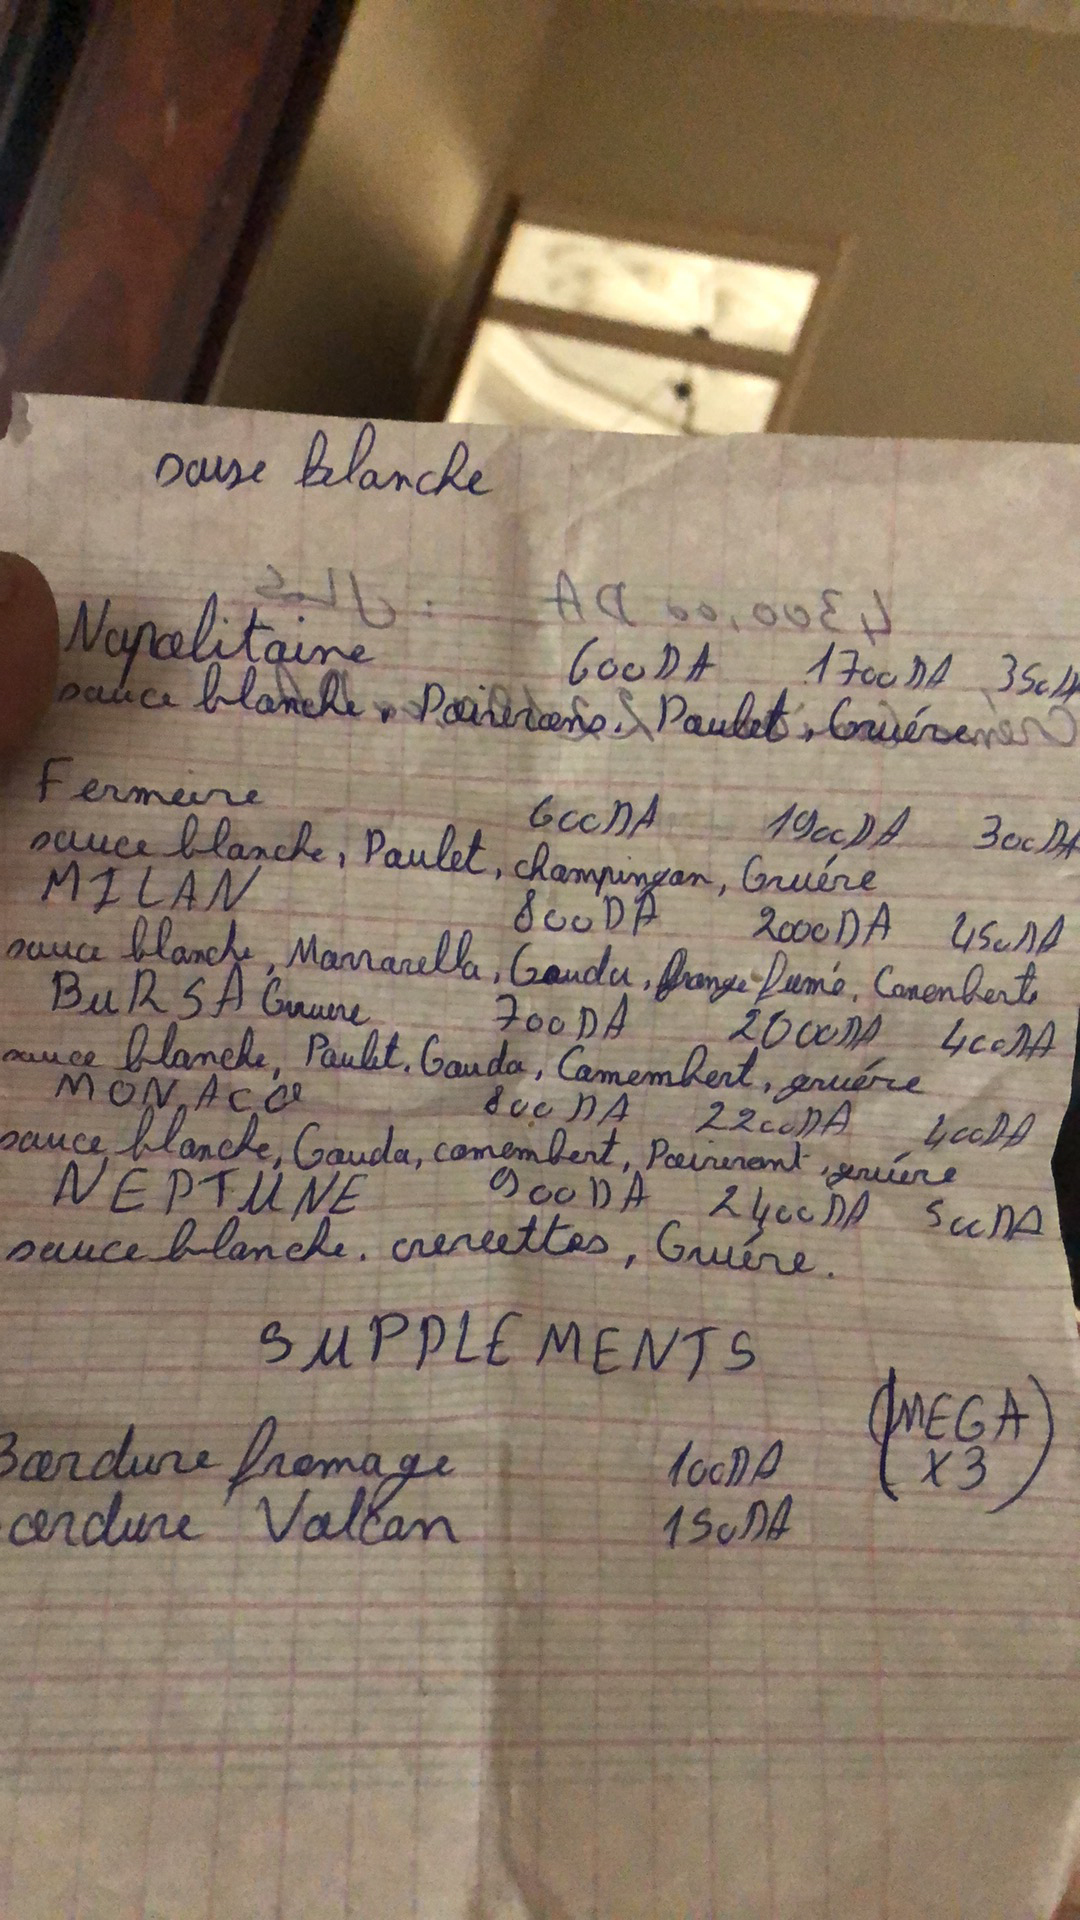 sause blanche
Napolitaine 600DA 1700DA 350DA
sauce blanche, Poivrons, Paulet, Gruére
Fermeire 600DA 1900DA 300DA
sauce blanche, Paulet, champingon, Gruére
MILAN 800DA 2000DA 450DA
sauce blanche, Marrarella, Gouda, fumé, Camenberte
BURSA Gruere 700DA 2000DA 400DA
sauce blanche, Paulet, Gouda, Camembert, gruére
MONACO 800DA 2200DA 400DA
sauce blanche, Gouda, camembert, gruére
NEPTUNE 900DA 2400DA 500DA
sauce blanche. crevettes, Gruére.
SUPPLEMENTS
(MEGA X3)
Bordure fromage 100DA
ordure Volcan 150DA